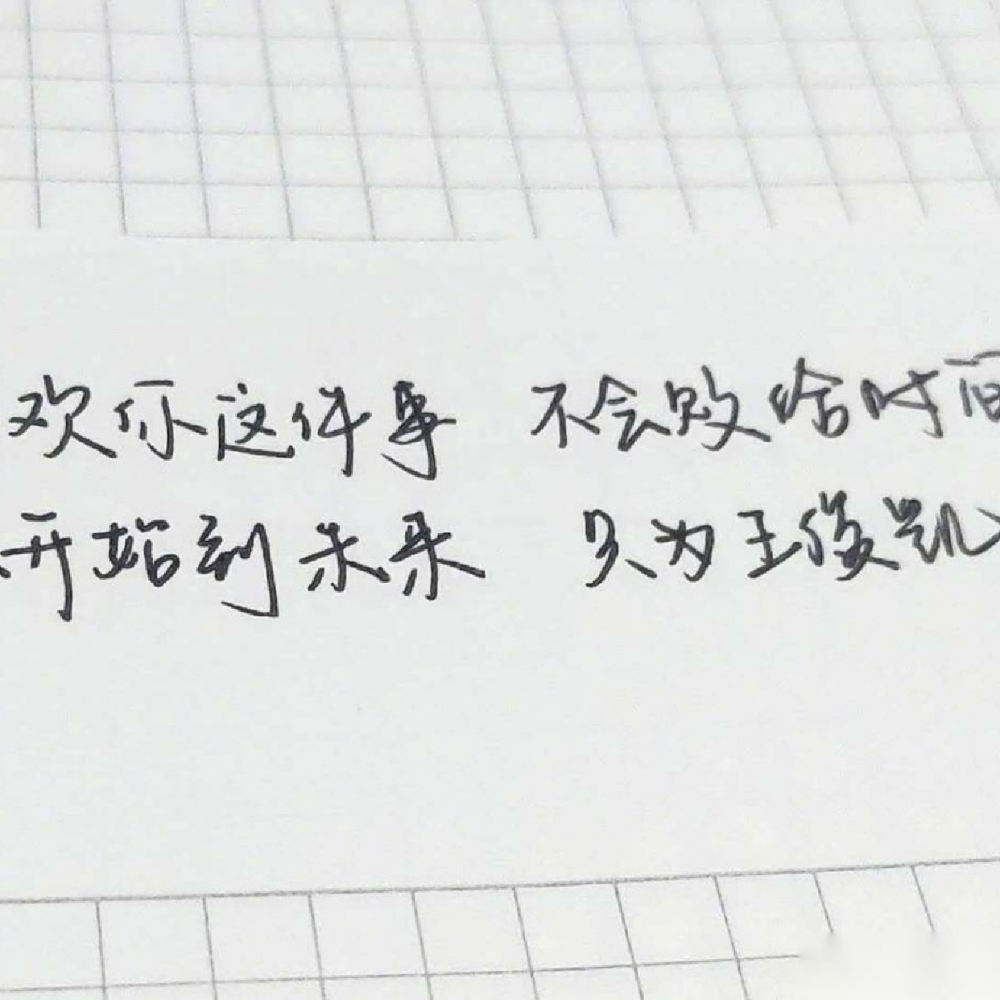 欢你这件事 不会败给时间
开始到未来 只为王俊凯